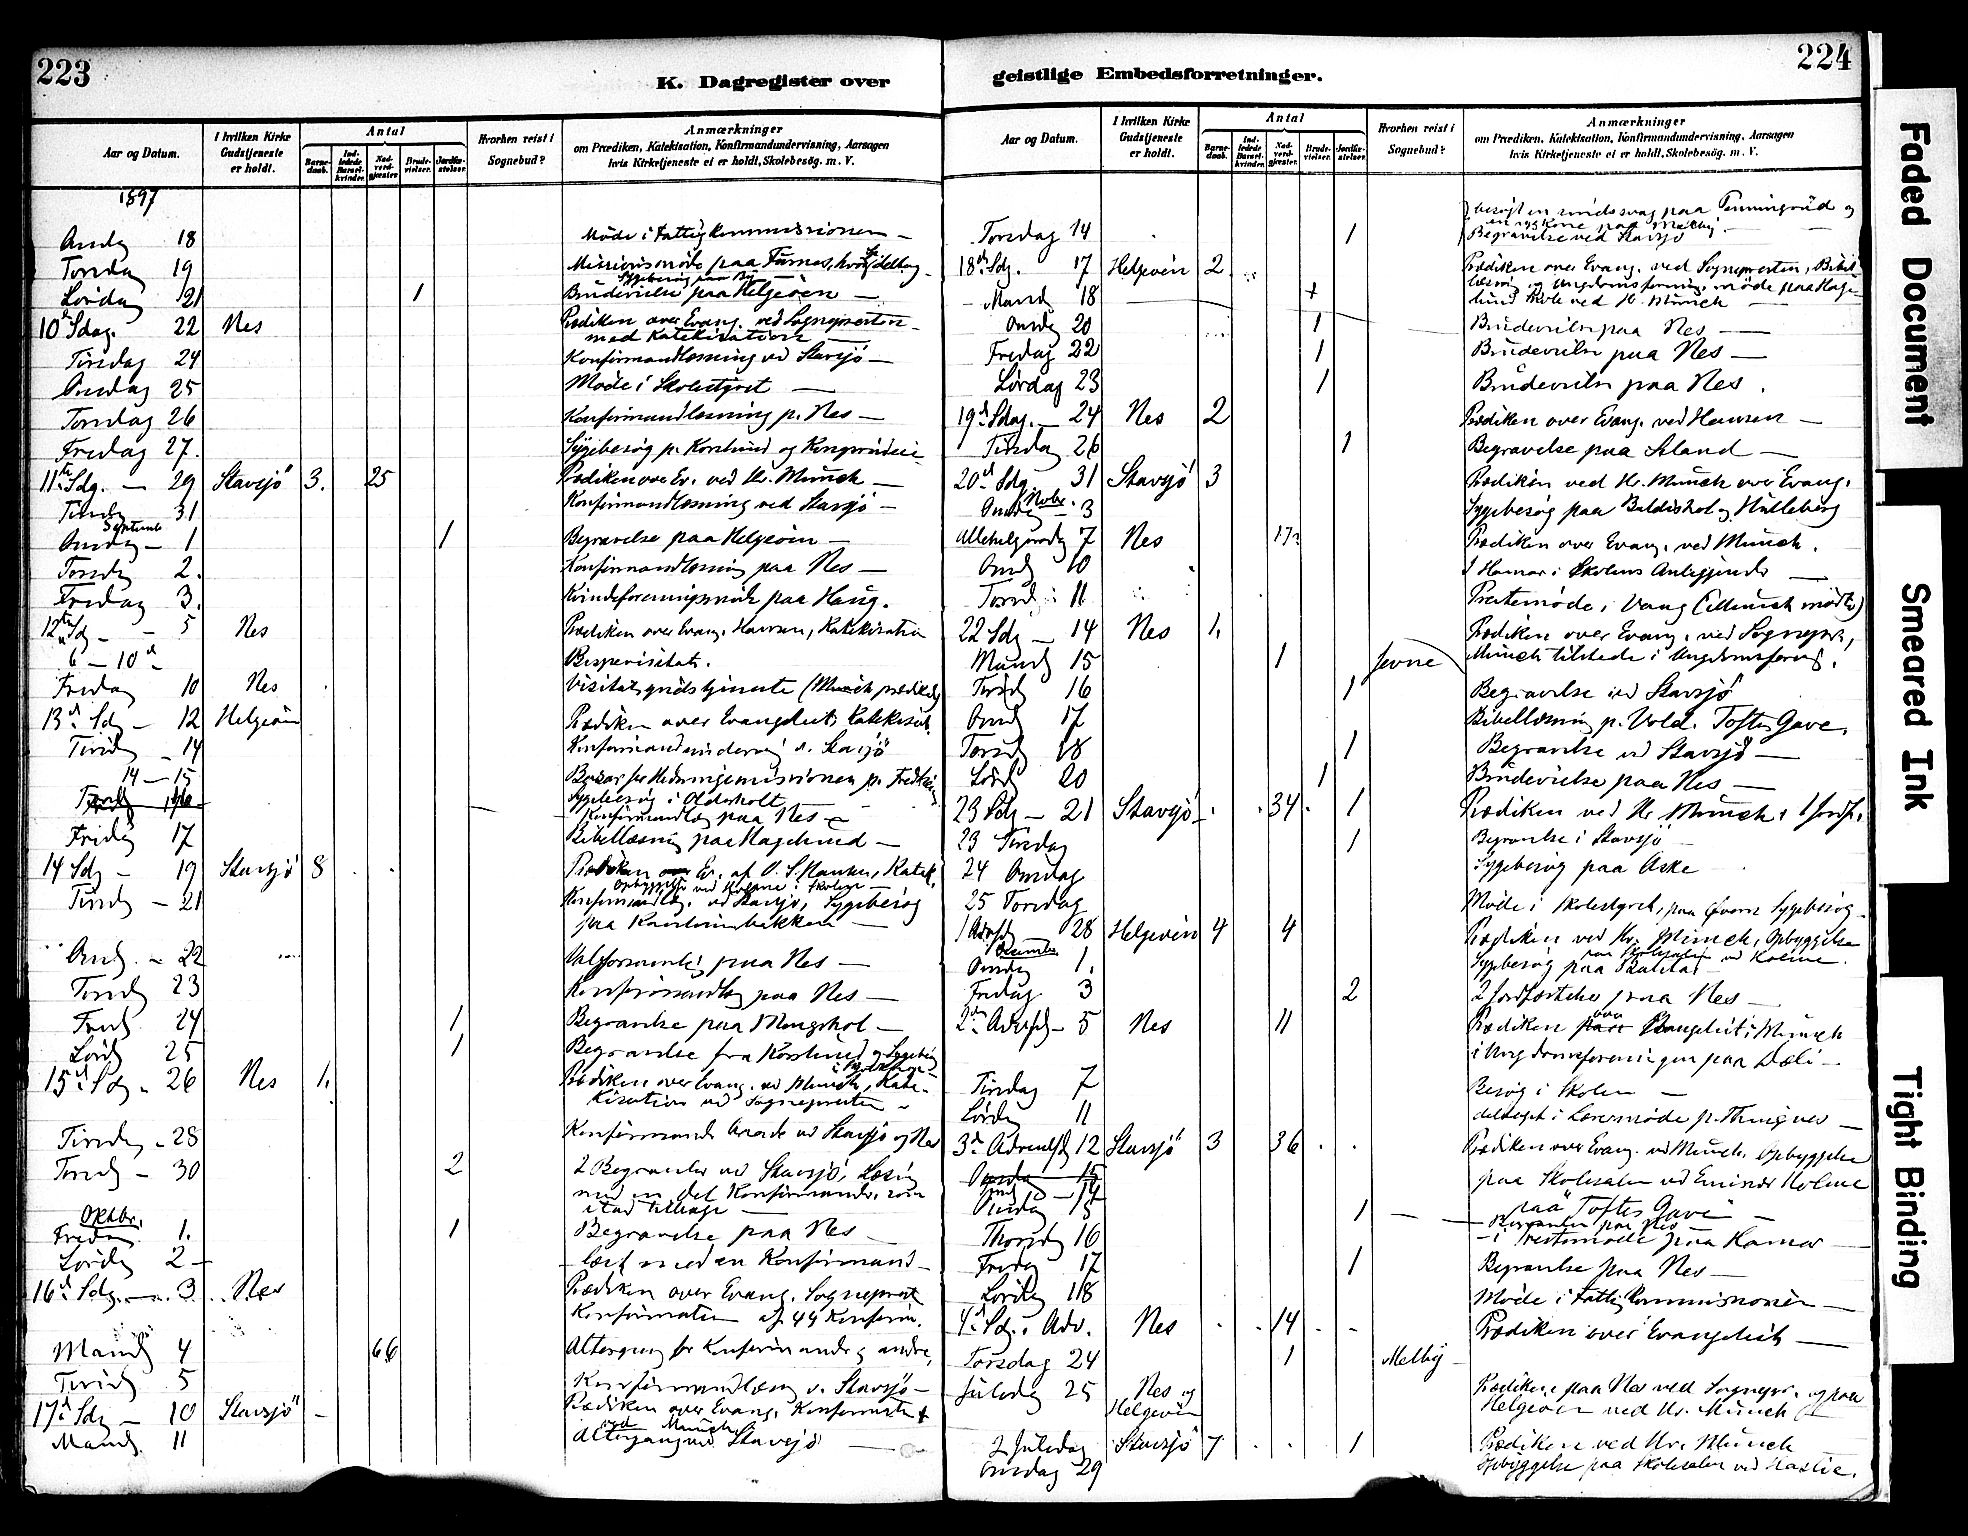 223
K. Dagregister over
Aar og Datum.
I hvilken Kirke Gudstjeneste er holdt.
Antal
Barne-daab.
Ind-ledede Barsel-kvinder.
Nad-verd-gjester.
Brude-vielser.
Jordfæ-stelser.
Hvorhen reist i Sognebud?
Anmærkninger
om Prædiken, Katekisation, Konfirmandundervisning, Aarsagen
hvis Kirketjeneste ei er holdt, Skolebesög. m. V.
1897
Onsdg 18 Møde i Fattigkommissionen —
Torsdag 19 Missionsmøde paa Furnes,
Lørdag 21 1 Brudevielse paa Helgeøen —
10d Sdag. 22 Nes Prædiken over Evang. ved Sognepresten
med Katekisation
Tirsdag 24 Konfirmandlæsning ved Stavsjö —
Onsdag 25 Møde i Skolestyret —
Torsdag 26 Konfirmandlæsning p. Nes —
Fredag 27. Sygebesøg p. Korslund og
11te Sdg. — 29 Stavsjö 3. 25 Prædiken over Ev. ved Hr. Munch —
Tirsdg 31 Konfirmandlæsning ved Stavsjö —
Septembr
Onsdg — 1 1 Begravelse paa Helgeöen —
Torsdg 2. Konfirmandlæsning paa Nes —
Fredag 3. Kvindeforeningsmøde paa Haug.
12te Sdg — 5 Nes Prædiken over Evang. Hansen, Katekisation
6 — 10d Bispevisitats.
Fredag 10 Nes Visitatsgudstjeneste (Munch prædiked)
13d Sdg — 12 Helgeöen Prædiken over Evangeliet, Katekisat.
Tirsdg — 14 Konfirmandunderv. v. Stavsjö
14 — 15 Bazar for Hedningemissionen p.
Sygebesøg i
Konfirmandlæs paa Nes —
Fredag 17 Bibellæsning paa Hagelund —
14 Sdg — 19 Stavsjö 8 Prædiken over Ev. af O. S. Hansen, Katek.
Opbyggelse ved Holme i Skolen —
Tirsdg — 21 Konfirmandlæs. ved Stavsjö, Sygebesög
paa
Onsd. — 22 Valgforsamling paa Nes —
Torsdg 23 Konfirmandlæs paa Nes —
Fred. 24 1 Begravelse paa —
Lørdg 25 1 Begravelse fra Korslund og Sygebesög
15d Sdg. 26 Nes 1. Prædiken over Evang. ved Munch, Kate-
kisation ved Sognepresten —
Tirsdg — 28 Konfirmand ved Stavsjö og Nes
Torsdg — 30 2 2 Begravelser ved Stavsjö, Læsning
med en del Konfirmander, som
stod tilbage —
Oktbr.
Fredag 1. 1 Begravelse paa Nes —
Lørdg 2 — læst med en Konfirmand —
16d Sdg. — 3 Nes Prædiken over Evang. Sogneprest
Konfirmation af 44 Konfirm.
Mandg 4 66 Altergang for Konfirmander og andre,
Tirsdg 5 Konfirmandlæsning v. Stavsjö —
17d Sdg — 10 Stavsjö — Prædiken over Evang. Konfirmation
Mandg. 11 Altergang ved Stavsjö —
224
geistlige Embedsforretninger.
Aar og Datum.
I hvilken Kirke Gudstjeneste er holdt.
Antal
Barne-daab.
Ind-ledede Barsel-kvinder.
Nad-verd-gjester.
Brude-vielser.
Jordfæ-stelser.
Hvorhen reist i Sognebud?
Anmærkninger
om Prædiken, Katekisation, Konfirmandundervisning, Aarsagen
hvis Kirketjeneste ei er holdt, Skolebesög. m. V.
besögt en sindssvag paa Tenningrud og
en syg Kone paa Melby.
Torsdag 14 1 Begravelse ved Stavsjö
18de Sdg. 17 Helgeöen 2 Prædiken over Evang. ved Sognepresten, Bibel-
læsning og Ungdomsforeningsmöde paa Hage-
Mandg 18 lund Skole ved Hr. Munch —
Onsdg 20 1 Brudevielse paa Nes —
Fredag 22 1 Brudevielse paa Nes —
Lördag 23 1 Brudevielse paa Nes.
19d Sdag. — 24 Nes 2 Prædiken over Evang. ved Hansen —
Tirsdag 26 1 Begravelse paa —
20d Sdg. 31 Stavsjö 3 Prædiken ved Hr. Munch over Evang.
Novbr.
Onsdg — 3 Sygebesøg paa Baldishol og Hulleberg
Allehelgensdg 7 Nes Prædiken over Evang. ved Munch.
Onsdg 10 I Hamar i Skolens Anliggender —
Torsd. 11 Prestemøde i Vang (Munch mødte)
22 Sdg — 14 Nes 1. Prædiken over Evang. ved Sognepr.,
Mandg 15 1 Jevne Munch tilstede i Ungdomsforeng.
Tirsdg 16 1 Begravelse ved Stavsjö
Onsd 17 Bibellæsning p. Vold. Toftes Gave.
Torsdg 18 1 Begravelse ved Stavsjö —
Lördg 20 1 Brudevielse paa Nes —
23 Sdg — 21 Stavsjö 34 1 Prædiken ved Hr Munch, 1 Jordf.
23 Tirsdag 1 Begravelse i Stavsjö —
24 Onsdag Sygebesøg paa Aske
25 Torsdag Møde i Skolestyret, paa Sygebesög
1 Advsdg 28 Helgeöen 4 4 Prædiken ved Hr. Munch, Opbyggelse
paa Skolesalen ved Holme.
Decembr
Onsdag 1. Sygebesøg paa
Fredag 3 2 2 Jordfæstelser paa Nes —
2den Advsdg — 5 Nes 11 Prædiken over Evangeliet, Munch
i Ungdomsforeningen paa Dæli —
Tirsdag 7 Besøg i Skolen —
Lørdag 11 deltaget i Lærermøde p. Thingnes —
3d Adventsdg 12 Stavsjö 3 36 Prædiken over Evang. ved Munch. Opbyggelse
paa Skolesalen ved Emissær Holme
— 14 paa Toftes Gave —
Onsdag 15 1 Begravelse paa Nes —
Thorsdg 16 i Prestemøde paa Hamar —
Fredag 17 1 Begravelse paa Nes —
Lördag 18 Møde i Fattigkommissionen —
4d Sdg. i Adv. Nes 14 Prædiken over Evangeliet —
Torsdag 24 1 Melby
Juledag 25 Nes og Helgeöen Prædiken paa Nes ved Sognepr. og paa
Helgeøen ved Hr. Munch —
2 Juledag Stavsjö 7 1 Prædiken ved Hr. Munch
Onsdag 29 Opbyggelse paa Skolesalen ved
Faded Document
Smeared Ink
Tight Binding